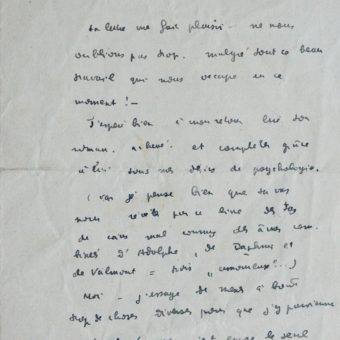 ta lettre me fait plaisir - ne nous
oublions pas trop. malgré tout ce beau
travail qui nous occupe en ce
moment! -
J'espère bien à mon retour lire ton
roman. achevé. et compléter grâce
à lui tous mes de psychologie.
(car je pense bien que tu vas
nous révéler par ce livre des
de coins mal connus des âmes com-
binées d'Adolphe, de Daphnis et
de Valmont = trois "amoureux"...)
Moi - j'essaye de mener à bout
trop de choses diverses pour que j'y parvienne
le seul